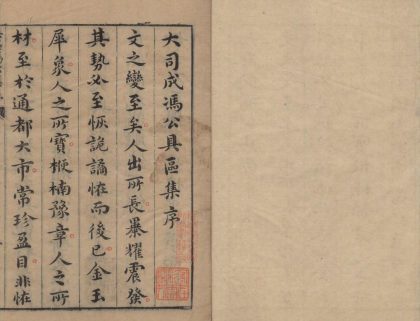 大司成馮公具區集序
文之變至矣人出所長暴耀震發
其勢必至恢詭譎怪而後已金玉
犀象人之所寶楩楠豫章人之所
材至於通都大市常珍盈目非恠